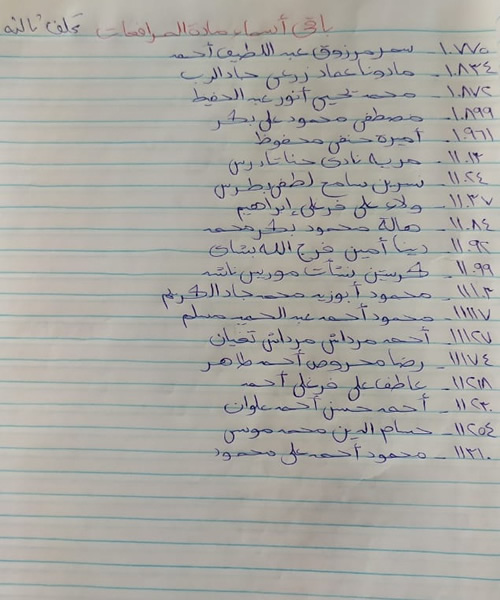 باقى أسماء مادة المرافعات تخلف ثالثه
١٠٧٧٥ـ سمر مرزوق عبد اللطيف أحمد
١٠٨٣٤ـ مادونا عماد زرعى جاد الرب
١٠٨٧٢ـ محمد يحيى أنور عبد الحفيظ
١٠٨٩٩ـ مصطفى محمود على بكر
١٠٩٦١ـ أميرة حنفى محفوظ
١١٠١٣ـ مريه نادى حنا تادرس
١١٠٢٤ـ سرين سامح لطفى بطرس
١١٠٣٧ـ ولاء على فرغلى إبراهيم
١١٠٨٤ـ هالة محمود بكر محمد
١١٠٩٢ـ دينا أمين فرج الله بشاى
١١٠٩٩ـ كرستين نشأت موريس
١١١١٣ـ محمود أبوزيد محمد جاد الكريم
١١١١٧ـ محمود أحمد عبد الحميد مسلم
١١١٢٧ـ أحمد مرداش مرداش
١١١٧٤ـ رضا محروص أحمد طاهر
١١٢١٨ـ عاطف على فرغلى أحمد
١١٢٣٠ـ أحمد حسن أحمد علوان
١١٢٥٤ـ حسام الدين محمد موسى
١١٣١٠ـ محمود أحمد على محمود